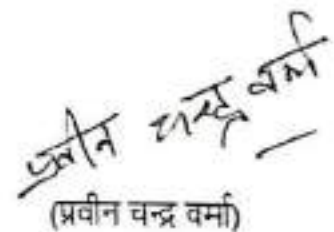 प्रवीन चन्द्र वर्मा
(प्रवीन चन्द्र वर्मा)